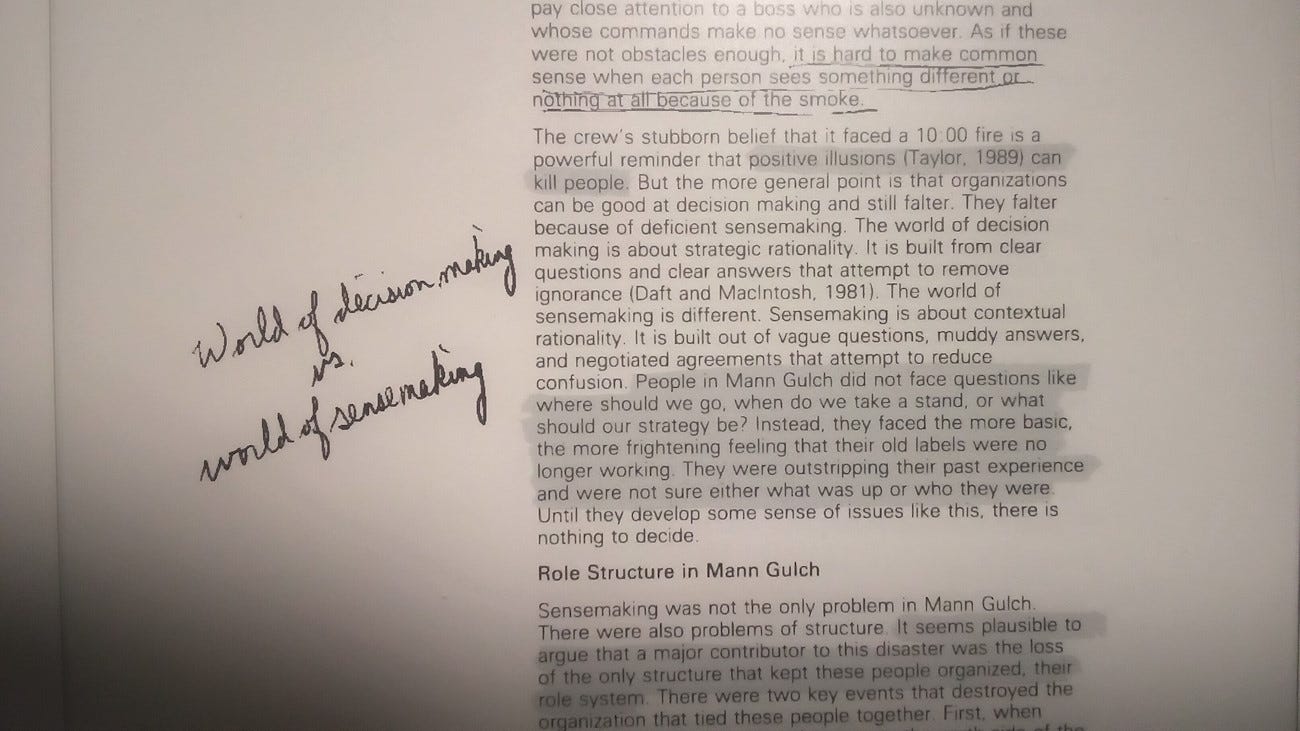 pay close attention to a boss who is also unknown and
whose commands make no sense whatsoever. As if these
were not obstacles enough, it is hard to make common
sense when each person sees something different or
nothing at all because of the smoke.
The crew's stubborn belief that it faced a 10:00 fire is a
powerful reminder that positive illusions (Taylor, 1989) can
kill people. But the more general point is that organizations
can be good at decision making and still falter. They falter
because of deficient sensemaking. The world of decision
making is about strategic rationality. It is built from clear
questions and clear answers that attempt to remove
ignorance (Daft and MacIntosh, 1981). The world of
sensemaking is different. Sensemaking is about contextual
rationality. It is built out of vague questions, muddy answers,
and negotiated agreements that attempt to reduce
confusion. People in Mann Gulch did not face questions like
where should we go, when do we take a stand, or what
should our strategy be? Instead, they faced the more basic,
the more frightening feeling that their old labels were no
longer working. They were outstripping their past experience
and were not sure either what was up or who they were.
Until they develop some sense of issues like this, there is
nothing to decide.
World of decision making
vs.
world of sensemaking
Role Structure in Mann Gulch
Sensemaking was not the only problem in Mann Gulch.
There were also problems of structure. It seems plausible to
argue that a major contributor to this disaster was the loss
of the only structure that kept these people organized, their
role system. There were two key events that destroyed the
organization that tied these people together. First, when